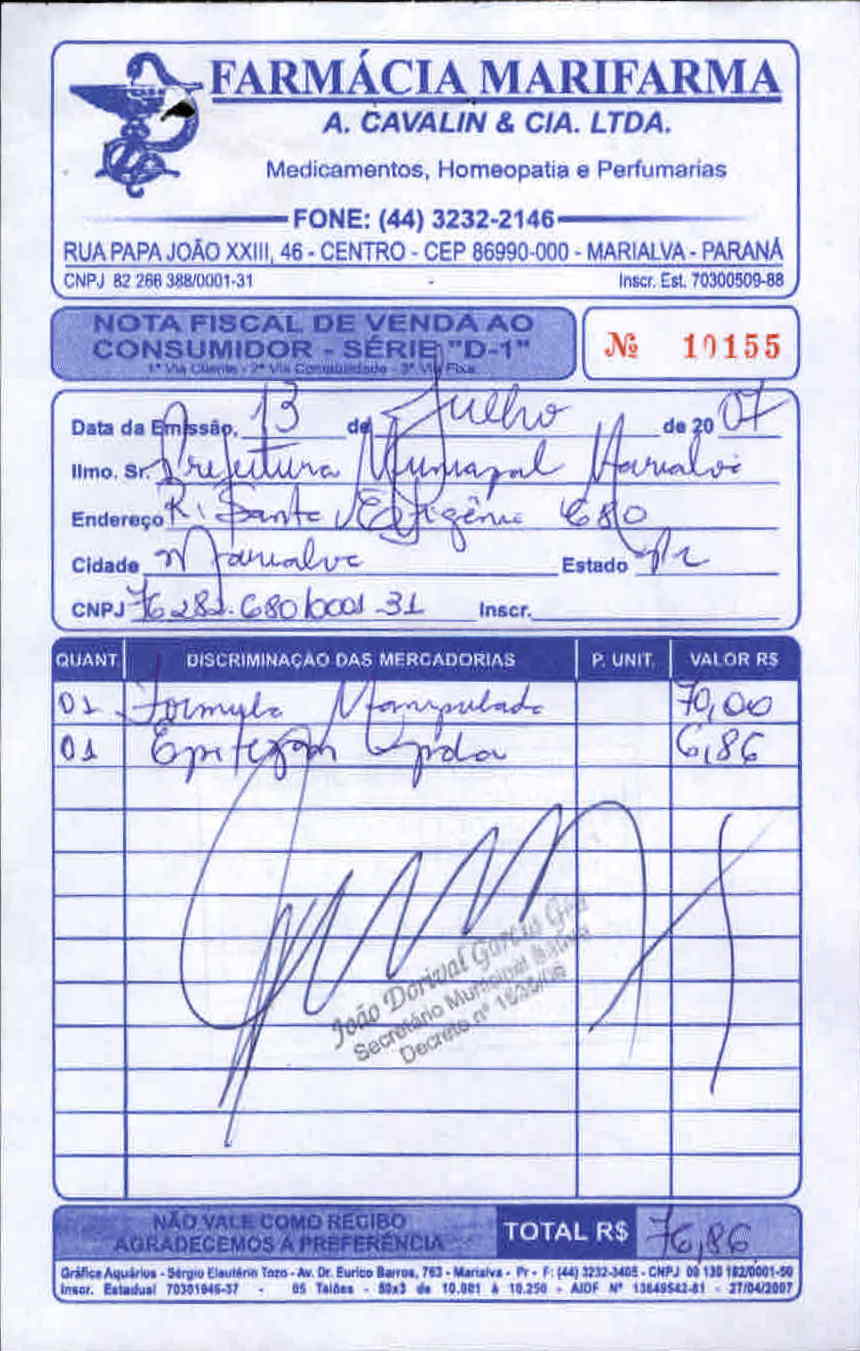 FARMÁCIA MARIFARMA
A. CAVALIN & CIA. LTDA.
Medicamentos, Homeopatia e Perfumarias
FONE: (44) 3232-2146
RUA PAPA JOÃO XXIII, 46 - CENTRO - CEP 86990-000 - MARIALVA - PARANÁ
CNPJ 82 266 388/0001-31 Inscr. Est. 70300509-88
NOTA FISCAL DE VENDA AO
CONSUMIDOR - SÉRIE "D-1"
1ª Via Cliente - 2ª Via Contabilidade - 3ª Via Fixa
Nº 10155
Data da Emissão, 13 de Julho de 20 07
Ilmo. Sr. Prefeitura Municipal Marialva
Endereço R. Santa Efigênia 680
Cidade Marialva Estado Pr
CNPJ 76 282.680/0001-31 Inscr.
QUANT. DISCRIMINAÇÃO DAS MERCADORIAS P. UNIT. VALOR R$
01 Formula Manipulada 70,00
01 6,86
João Dorival Garcia
Secretário Municipal
Decreto nº
NÃO VALE COMO RECIBO
AGRADECEMOS A PREFERÊNCIA
TOTAL R$ 76,86
Gráfica Aquárius - Sérgio Elautério Tozo - Av. Dr. Eurico Barros, 763 - Marialva - Pr - F: (44) 3232-3405 - CNPJ 00 130 162/0001-50
Inscr. Estadual 70301946-37 - 05 Talões - 50x3 de 10.001 à 10.250 - AIDF Nº 13649542-81 - 27/04/2007